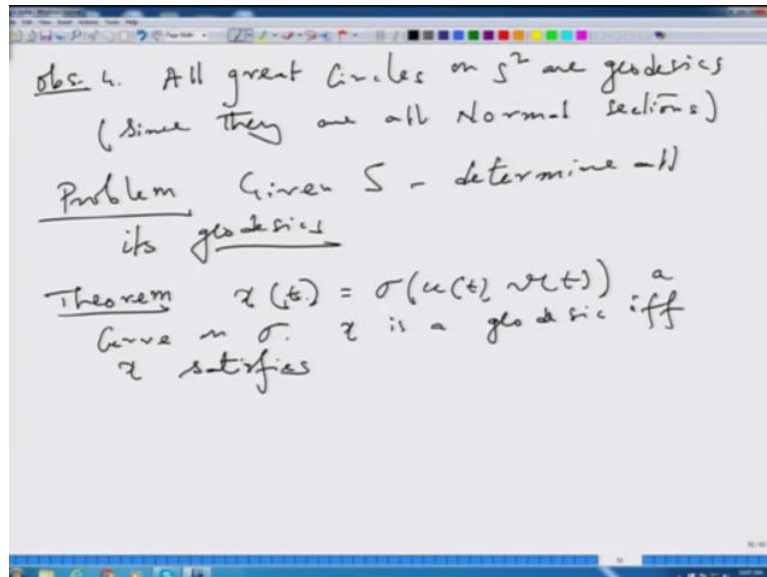 obs. 4. All great Circles on S² are geodesics
(Since they are all Normal sections)
Problem Given S - determine all
its geodesics
Theorem x(t) = σ(u(t), v(t)) a
Curve on σ. x is a geodesic iff
x satisfies